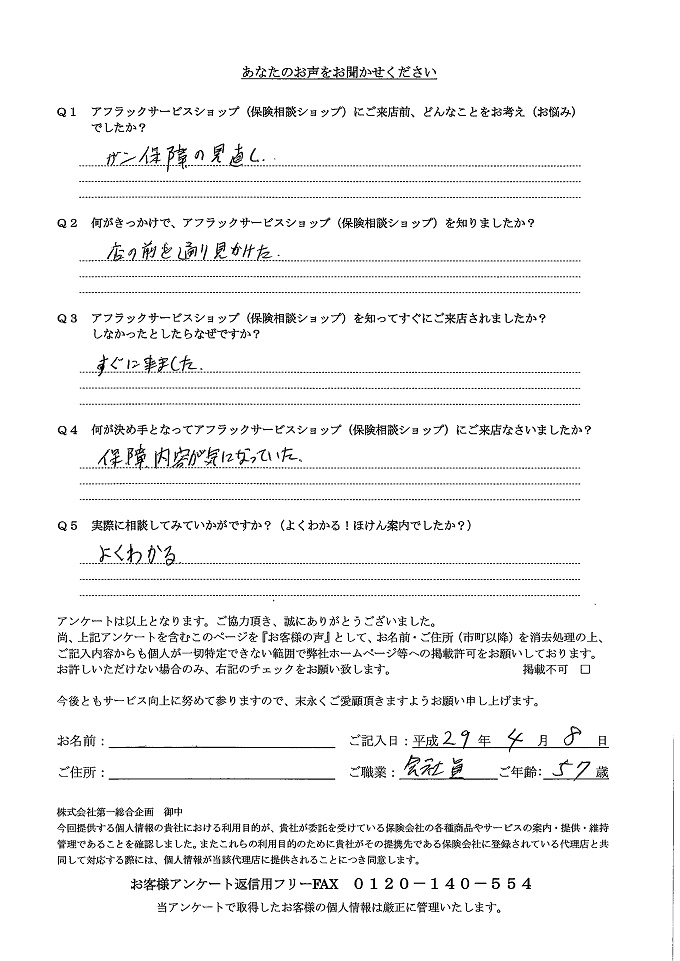 あなたのお声をお聞かせください
Q1 アフラックサービスショップ（保険相談ショップ）にご来店前、どんなことをお考え（お悩み）
でしたか？
ガン保障の見直し.
Q2 何がきっかけで、アフラックサービスショップ（保険相談ショップ）を知りましたか？
店の前を通り見かけた.
Q3 アフラックサービスショップ（保険相談ショップ）を知ってすぐにご来店されましたか？
しなかったとしたらなぜですか？
すぐに来ました.
Q4 何が決め手となってアフラックサービスショップ（保険相談ショップ）にご来店なさいましたか？
保障内容が気になっていた、
Q5 実際に相談してみていかがですか？（よくわかる！ほけん案内でしたか？）
よくわかる
アンケートは以上となります。ご協力頂き、誠にありがとうございました。
尚、上記アンケートを含むこのページを『お客様の声』として、お名前・ご住所（市町以降）を消去処理の上、
ご記入内容からも個人が一切特定できない範囲で弊社ホームページ等への掲載許可をお願いしております。
お許しいただけない場合のみ、右記のチェックをお願い致します。 掲載不可 □
今後ともサービス向上に努めて参りますので、末永くご愛顧頂きますようお願い申し上げます。
お名前： ご記入日：平成29年 4月 8日
ご住所： ご職業：会社員 ご年齢：57歳
株式会社第一総合企画 御中
今回提供する個人情報の貴社における利用目的が、貴社が委託を受けている保険会社の各種商品やサービスの案内・提供・維持
管理であることを確認しました。またこれらの利用目的のために貴社がその提携先である保険会社に登録されている代理店と共
同して対応する際には、個人情報が当該代理店に提供されることにつき同意します。
お客様アンケート返信用フリーFAX 0120－140－554
当アンケートで取得したお客様の個人情報は厳正に管理いたします。